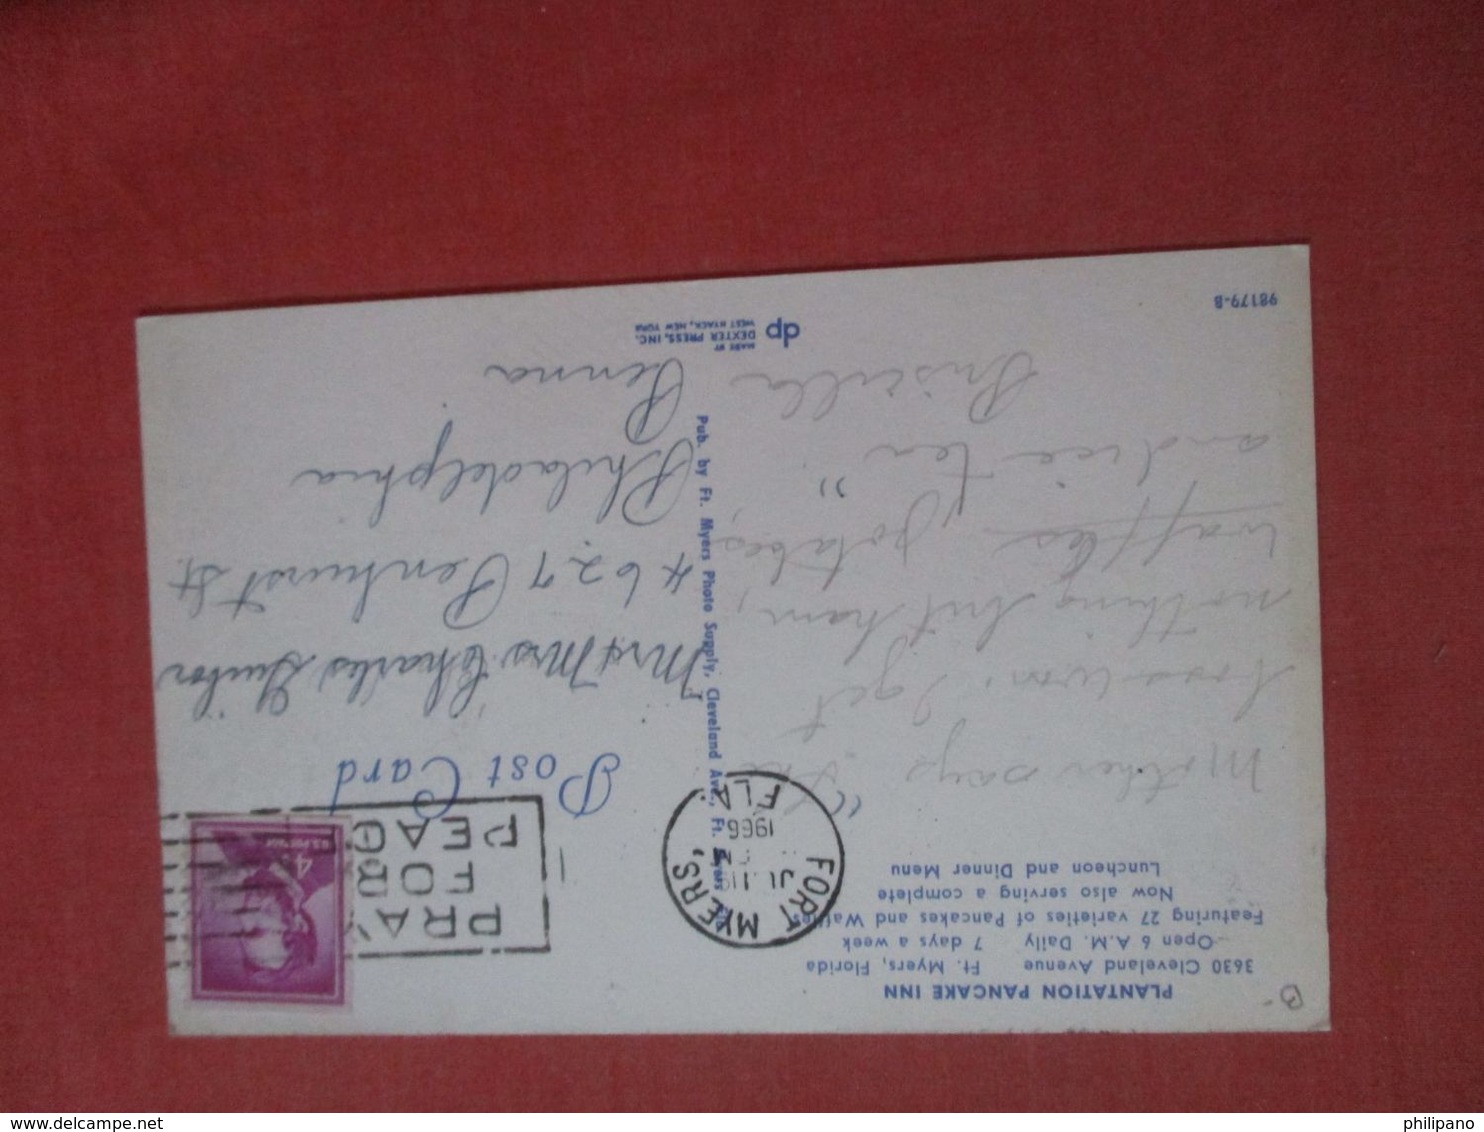 PLANTATION PANCAKE INN
3630 Cleveland Avenue Ft. Myers, Florida
Open 6 A.M. Daily 7 days a week
Featuring 27 varieties of Pancakes and Waffles
Now also serving a complete
Luncheon and Dinner Menu
B
FORT MYERS,
1966
FLA.
PRAY
FOR
PEACE
4¢
U.S. POSTAGE
Post Card
Mother says "
I get
nothing but ham,
waffles, potatoes,
and ice tea".
Priscilla
Mr & Mrs Charles
4627 Penhurst St.
Philadelphia
Penna
Pub. by Ft. Myers Photo Supply, Cleveland Ave., Ft. Myers, Fla.
98179-B
dp
MADE BY
DEXTER PRESS, INC.
WEST NYACK, NEW YORK
philipano
www.delcampe.net